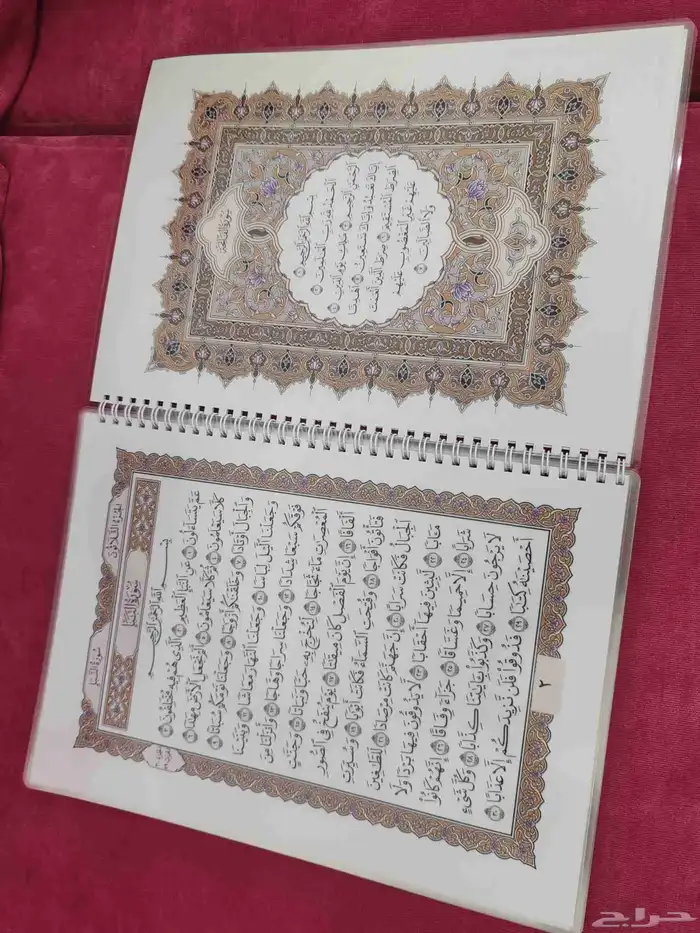 سُورَةُ الفَاتِحَةِ
بِسْمِ ٱللَّهِ ٱلرَّحْمَٰنِ ٱلرَّحِيمِ ١
ٱلْحَمْدُ لِلَّهِ رَبِّ ٱلْعَٰلَمِينَ ٢
ٱلرَّحْمَٰنِ ٱلرَّحِيمِ ٣ مَٰلِكِ يَوْمِ ٱلدِّينِ ٤
إِيَّاكَ نَعْبُدُ وَإِيَّاكَ نَسْتَعِينُ ٥ ٱهْدِنَا
ٱلصِّرَٰطَ ٱلْمُسْتَقِيمَ ٦ صِرَٰطَ ٱلَّذِينَ أَنْعَمْتَ
عَلَيْهِمْ غَيْرِ ٱلْمَغْضُوبِ عَلَيْهِمْ
وَلَا ٱلضَّآلِّينَ ٧
الجزء الثلاثون
سورة النبإ
سُورَةُ النَّبَإِ
بِسْمِ ٱللَّهِ ٱلرَّحْمَٰنِ ٱلرَّحِيمِ
عَمَّ يَتَسَآءَلُونَ ١ عَنِ ٱلنَّبَإِ ٱلْعَظِيمِ ٢ ٱلَّذِى هُمْ فِيهِ مُخْتَلِفُونَ ٣
كَلَّا سَيَعْلَمُونَ ٤ ثُمَّ كَلَّا سَيَعْلَمُونَ ٥ أَلَمْ نَجْعَلِ ٱلْأَرْضَ مِهَٰدًا ٦
وَٱلْجِبَالَ أَوْتَادًا ٧ وَخَلَقْنَٰكُمْ أَزْوَٰجًا ٨ وَجَعَلْنَا نَوْمَكُمْ سُبَاتًا ٩
وَجَعَلْنَا ٱلَّيْلَ لِبَاسًا ١٠ وَجَعَلْنَا ٱلنَّهَارَ مَعَاشًا ١١ وَبَنَيْنَا
فَوْقَكُمْ سَبْعًا شِدَادًا ١٢ وَجَعَلْنَا سِرَاجًا وَهَّاجًا ١٣ وَأَنزَلْنَا مِنَ
ٱلْمُعْصِرَٰتِ مَآءً ثَجَّاجًا ١٤ لِّنُخْرِجَ بِهِۦ حَبًّا وَنَبَاتًا ١٥ وَجَنَّٰتٍ
أَلْفَافًا ١٦ إِنَّ يَوْمَ ٱلْفَصْلِ كَانَ مِيقَٰتًا ١٧ يَوْمَ يُنفَخُ فِى ٱلصُّورِ
فَتَأْتُونَ أَفْوَاجًا ١٨ وَفُتِحَتِ ٱلسَّمَآءُ فَكَانَتْ أَبْوَٰبًا ١٩ وَسُيِّرَتِ
ٱلْجِبَالُ فَكَانَتْ سَرَابًا ٢٠ إِنَّ جَهَنَّمَ كَانَتْ مِرْصَادًا ٢١ لِّلطَّٰغِينَ
مَـَٔابًا ٢٢ لَّٰبِثِينَ فِيهَآ أَحْقَابًا ٢٣ لَّا يَذُوقُونَ فِيهَا بَرْدًا وَلَا
شَرَابًا ٢٤ إِلَّا حَمِيمًا وَغَسَّاقًا ٢٥ جَزَآءً وِفَاقًا ٢٦ إِنَّهُمْ كَانُوا۟
لَا يَرْجُونَ حِسَابًا ٢٧ وَكَذَّبُوا۟ بِـَٔايَٰتِنَا كِذَّابًا ٢٨ وَكُلَّ شَىْءٍ
أَحْصَيْنَٰهُ كِتَٰبًا ٢٩ فَذُوقُوا۟ فَلَن نَّزِيدَكُمْ إِلَّا عَذَابًا ٣٠
٢
حراج